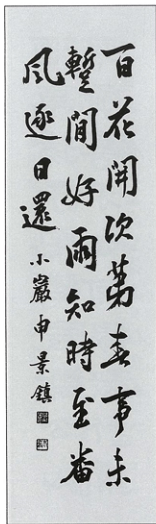 百花開次第春事未
暫閒好雨知時至番
風逐日還 小巖申景鎮